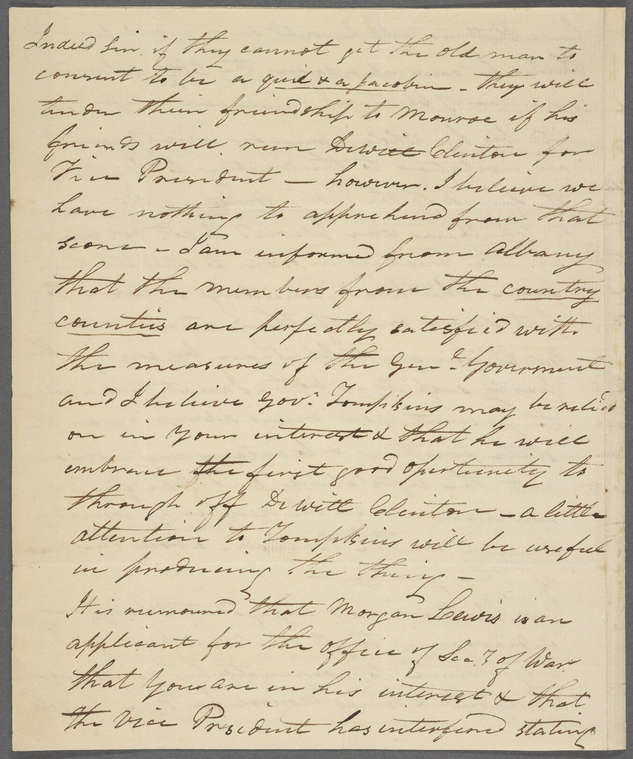 Indeed Sir, if they cannot get the old man to
consent to be a quid & a jacobin - they will
tender their friendship to Monroe if his
friends will run Dewitt Clinton for
Vice President — however, I believe we
have nothing to apprehend from that
score - I am informed from Albany
that the members from the country
counties are perfectly satisfied with
the measures of the Genl. Goverment
and I believe Govr. Tompkins may be relied
on in your interest & that he will
embrace the first good oportunity to
through off DeWitt Clinton - a little
attention to Tompkins will be useful
in producing the thing -
It is rumoured that Morgan Lewis is an
applicant for the office of Secy. of War
that you are in his interest & that
the Vice President has interfered stating